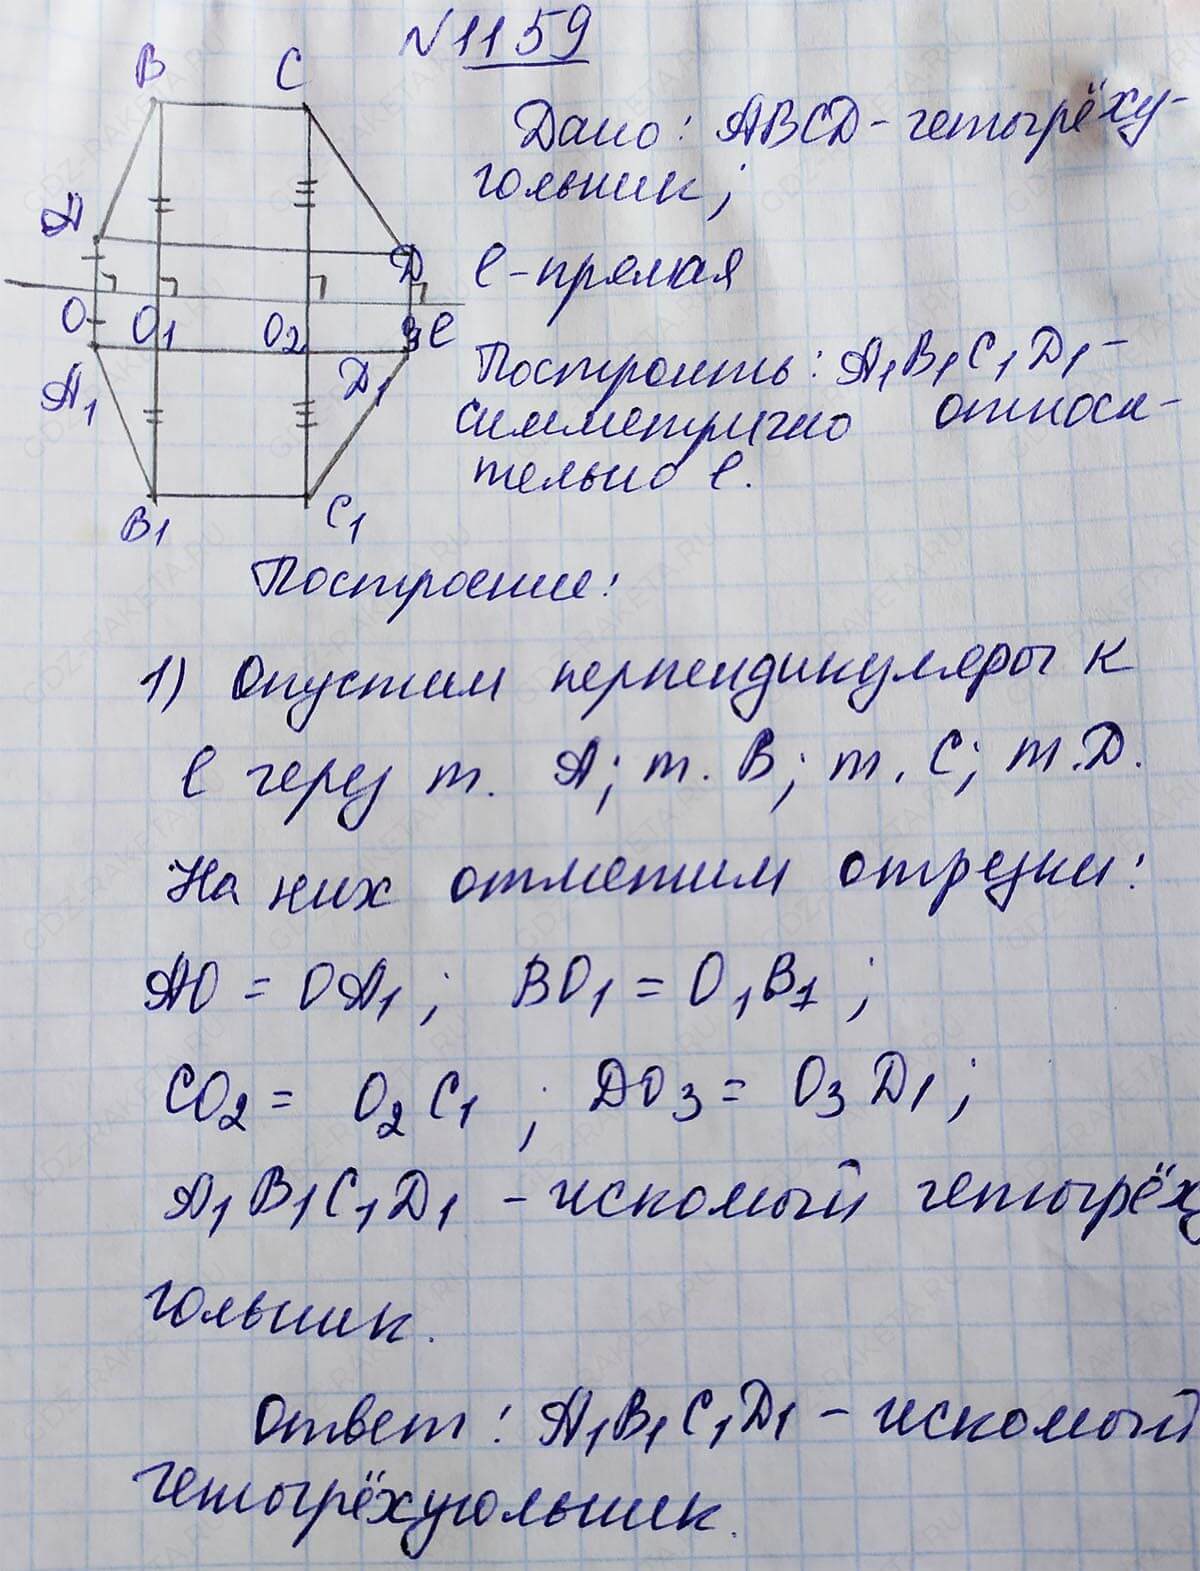 №1159
B C
Дано: ABCD - четырёху-
гольник;
A
D
l - прямая
O O1 O2 3 l
Построить: A1B1C1D1 -
A1 D1
симметрично относи-
тельно l.
B1 C1
Построение:
1) Опустим перпендикуляры к
l через т. A; т. B; т. C; т. D.
На них отметим отрезки:
AO = OA1; BO1 = O1B1;
CO2 = O2C1; DO3 = O3D1;
A1B1C1D1 - искомый четырёху
гольник.
Ответ: A1B1C1D1 - искомый
четырёхугольник.